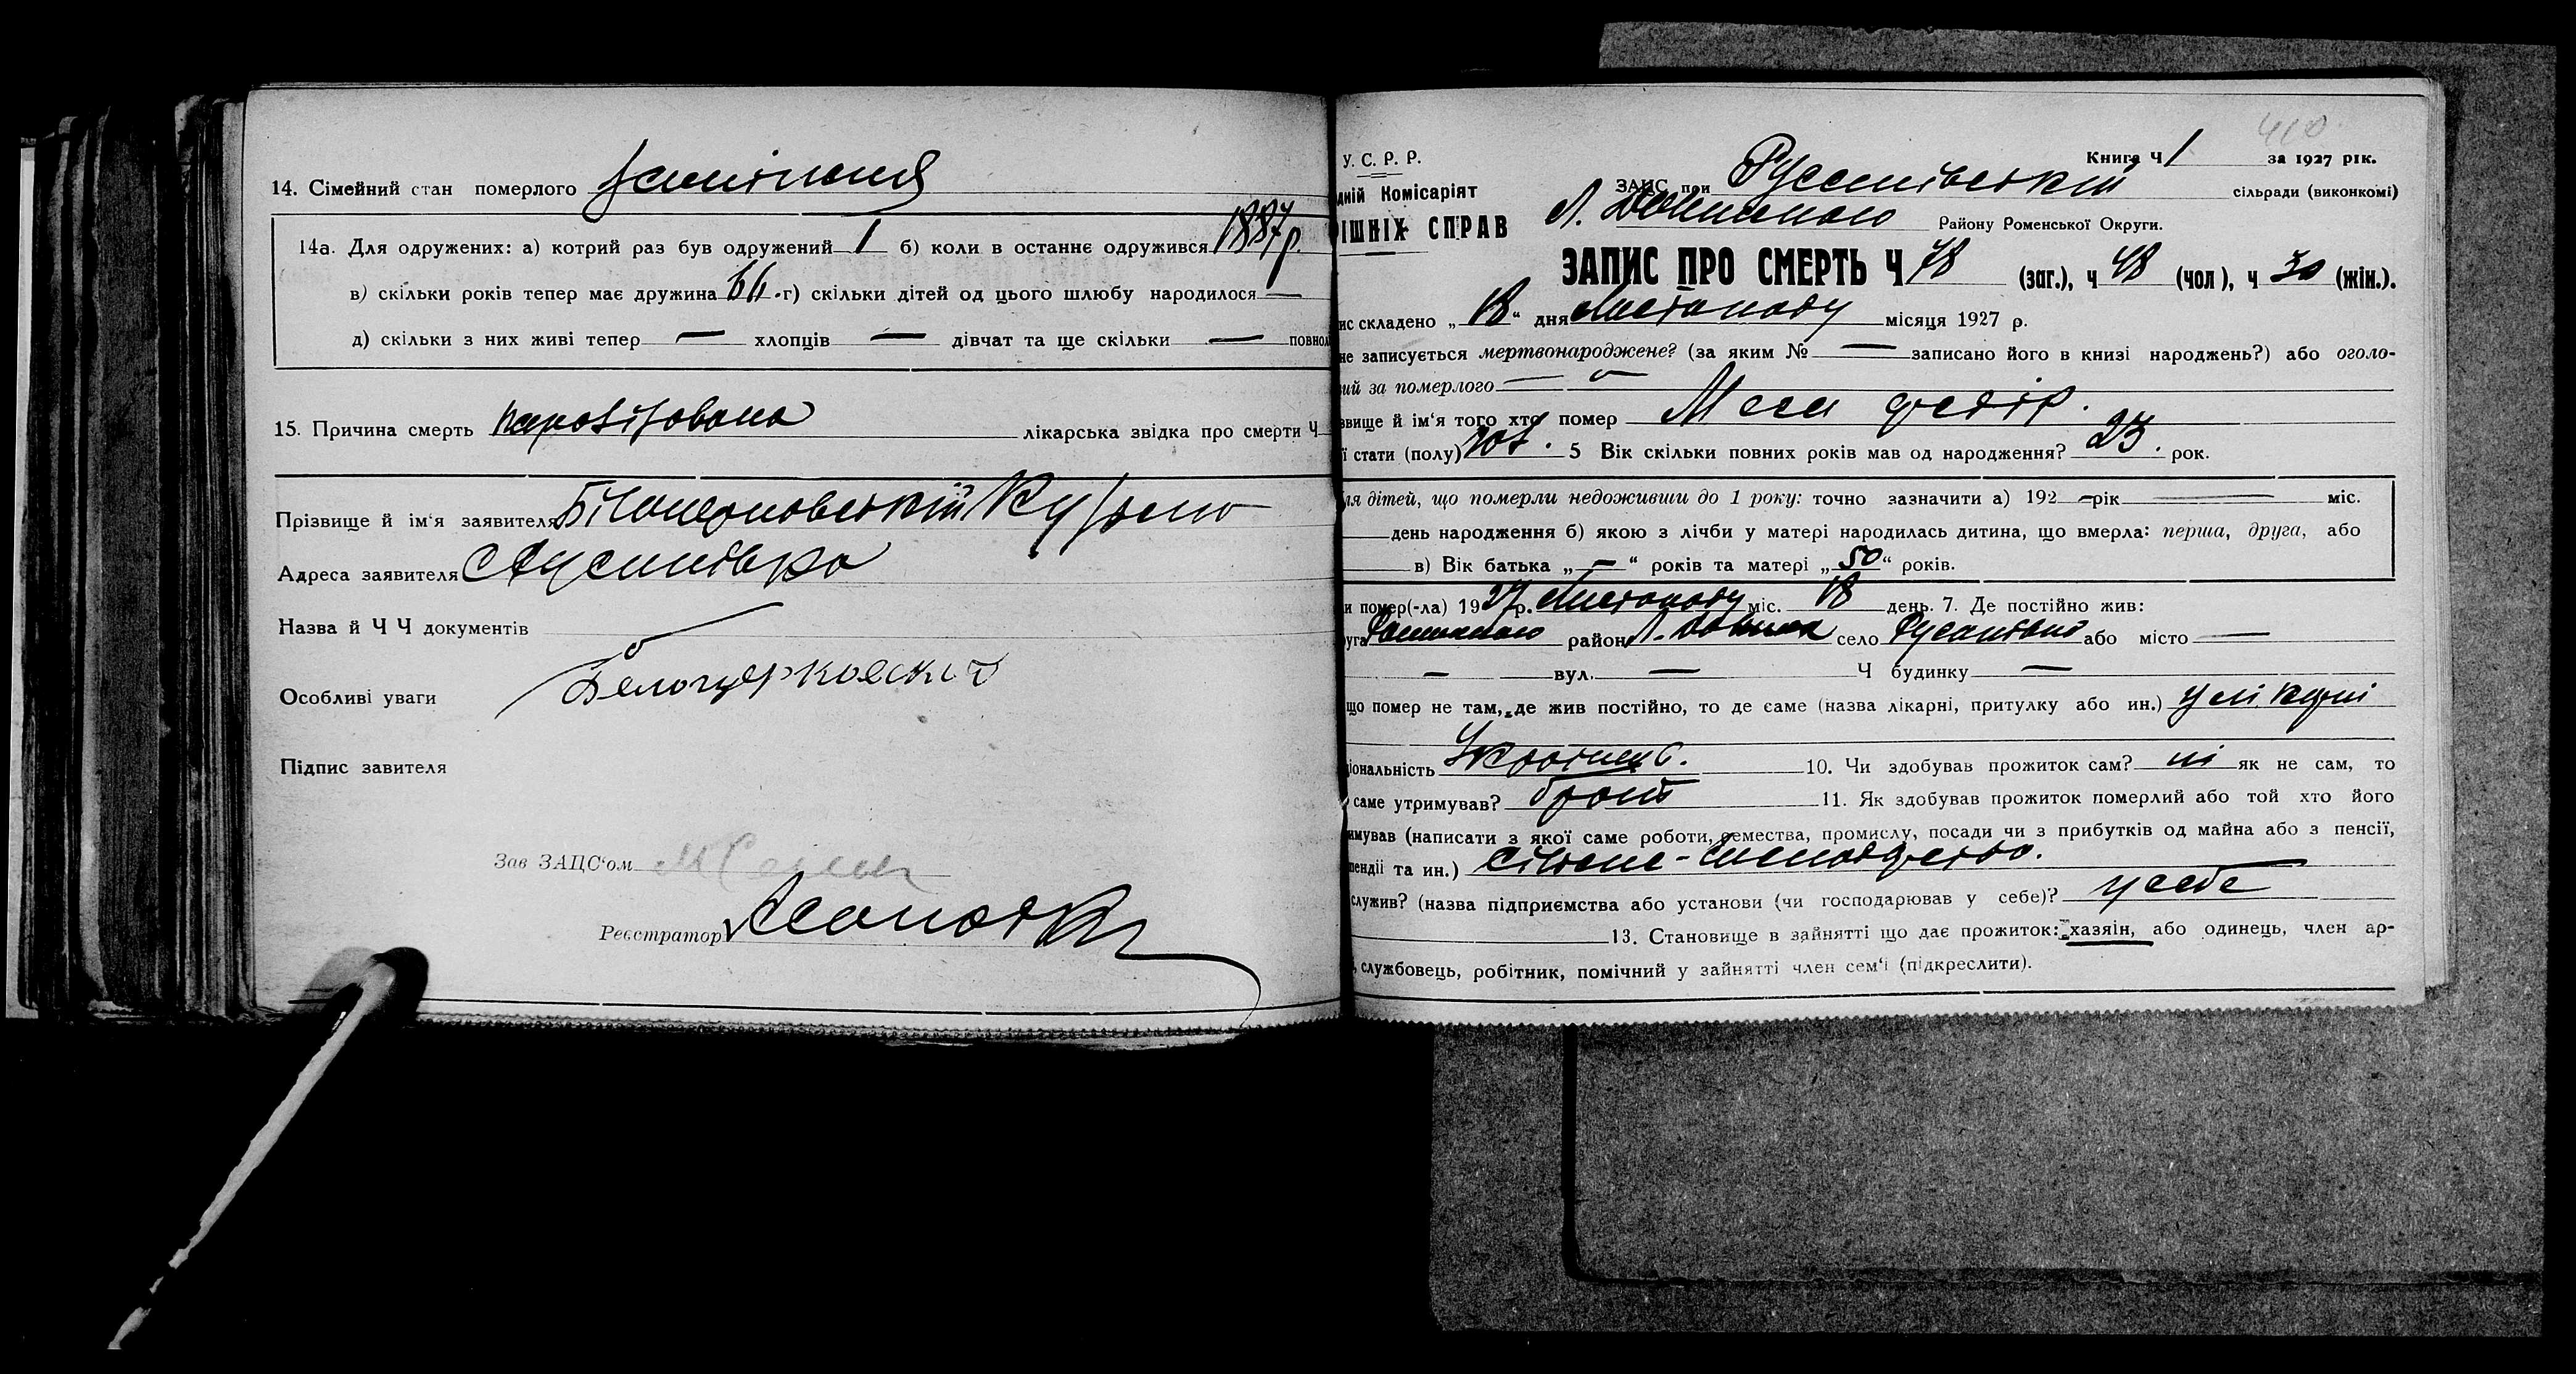 14. Сімейний стан померлого
14а. Для одружених: а) котрий раз був одружений 1 б) коли в останнє одружився 1887 р.
в) скільки років тепер має дружина 66 г) скільки дітей од цього шлюбу народилося —
д) скільки з них живі тепер — хлопців — дівчат та ще скільки — повнол
15. Причина смерть лікарська звідка про смерти Ч
Прізвище й ім'я заявителя Кузьма
Адреса заявителя
Назва й Ч Ч документів
Особливі уваги Белоцерковский
Підпис завителя
Зав ЗАЦС'ом
Реєстратор
410
У. С. Р. Р.
Книга Ч 1 за 1927 рік.
дній Комісаріят
ЗАЦС при Русанівській сільради (виконкомі)
ІШНІХ СПРАВ
Л. Долинського Району Роменської Округи.
ЗАПИС ПРО СМЕРТЬ Ч 78 (заг.), ч 48 (чол), ч 30 (жін.).
ис складено „18“ дня Листопаду місяця 1927 р.
не записується мертвонароджене? (за яким № — записано його в книзі народжень?) або оголо-
ий за померлого —
звище й ім'я того хто помер Федір
ї стати (полу) чол. 5 Вік скільки повних років мав од народження? 23 рок.
ля дітей, що померли недоживши до 1 року: точно зазначити а) 192 – рік — міс.
день народження б) якою з лічби у матері народилась дитина, що вмерла: перша, друга, або
в) Вік батька „—“ років та матері „50“ років.
и помер(-ла) 1927 р. Листопаду міс. 18 день. 7. Де постійно жив:
уга район село або місто —
— вул. — Ч будинку —
що помер не там, де жив постійно, то де саме (назва лікарні, притулку або ин.) у лікарні
іональність Україн. 10. Чи здобував прожиток сам? ні як не сам, то
саме утримував? брат 11. Як здобував прожиток померлий або той хто його
имував (написати з якої саме роботи, ремества, промислу, посади чи з прибутків од майна або з пенсії,
пендії та ин.) сільське-господарство.
служив? (назва підприємства або установи (чи господарював у себе)? у себе
13. Становище в зайнятті що дає прожиток: хазяін, або одинець, член ар-
, службовець, робітник, помічний у зайнятті член сем'ї (підкреслити).